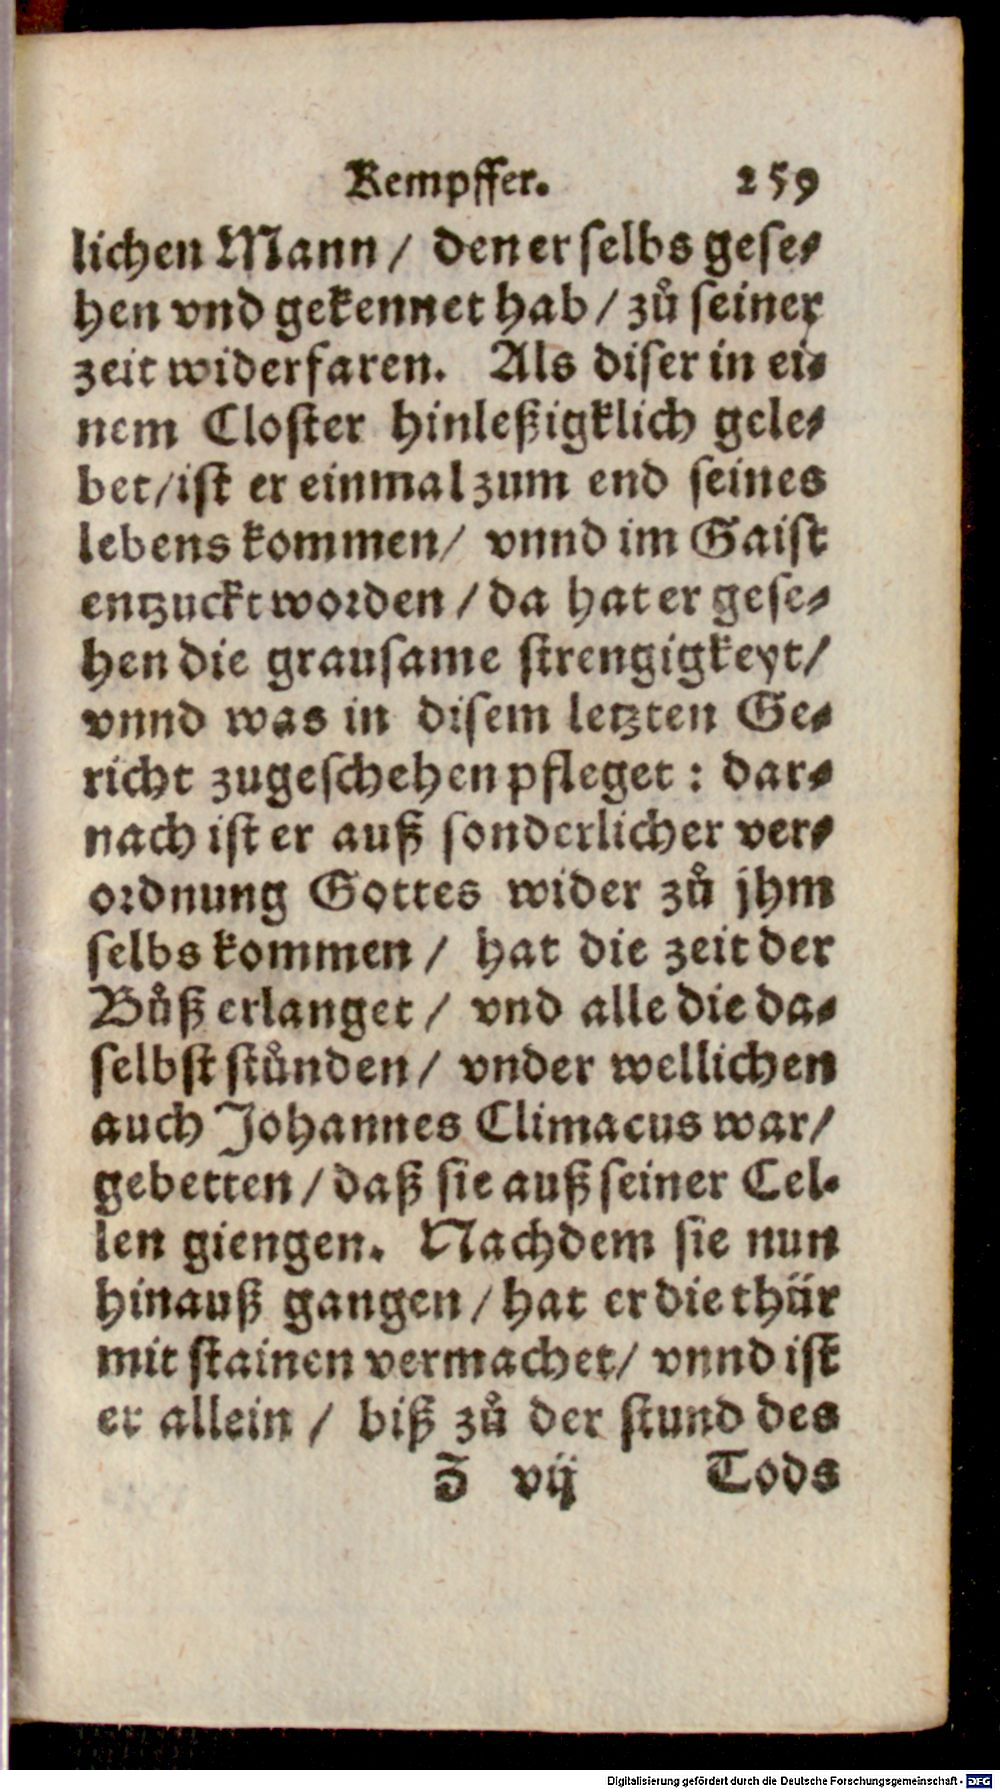 Kempffer. 259
lichen Mann / den er selbs gese⸗
hen vnd gekennet hab / zů seiner
zeit widerfaren. Als diser in ei⸗
nem Closter hinleßigklich gele⸗
bet / ist er einmal zum end seines
lebens kommen / vnnd im Gaist
entzuckt worden / da hat er gese⸗
hen die grausame strengigkeyt /
vnnd was in disem letzten Ge⸗
richt zugeschehen pfleget : dar⸗
nach ist er auß sonderlicher ver⸗
ordnung Gottes wider zů jhm
selbs kommen / hat die zeit der
Bůß erlanget / vnd alle die da⸗
selbst stůnden / vnder wellichen
auch Johannes Climacus war /
gebetten / daß sie auß seiner Cel⸗
len giengen. Nachdem sie nun
hinauß gangen / hat er die thür
mit stainen vermachet / vnnd ist
er allein / biß zů der stund des
vij Tods
Digitalisierung gefördert durch die Deutsche Forschungsgemeinschaft - DFG